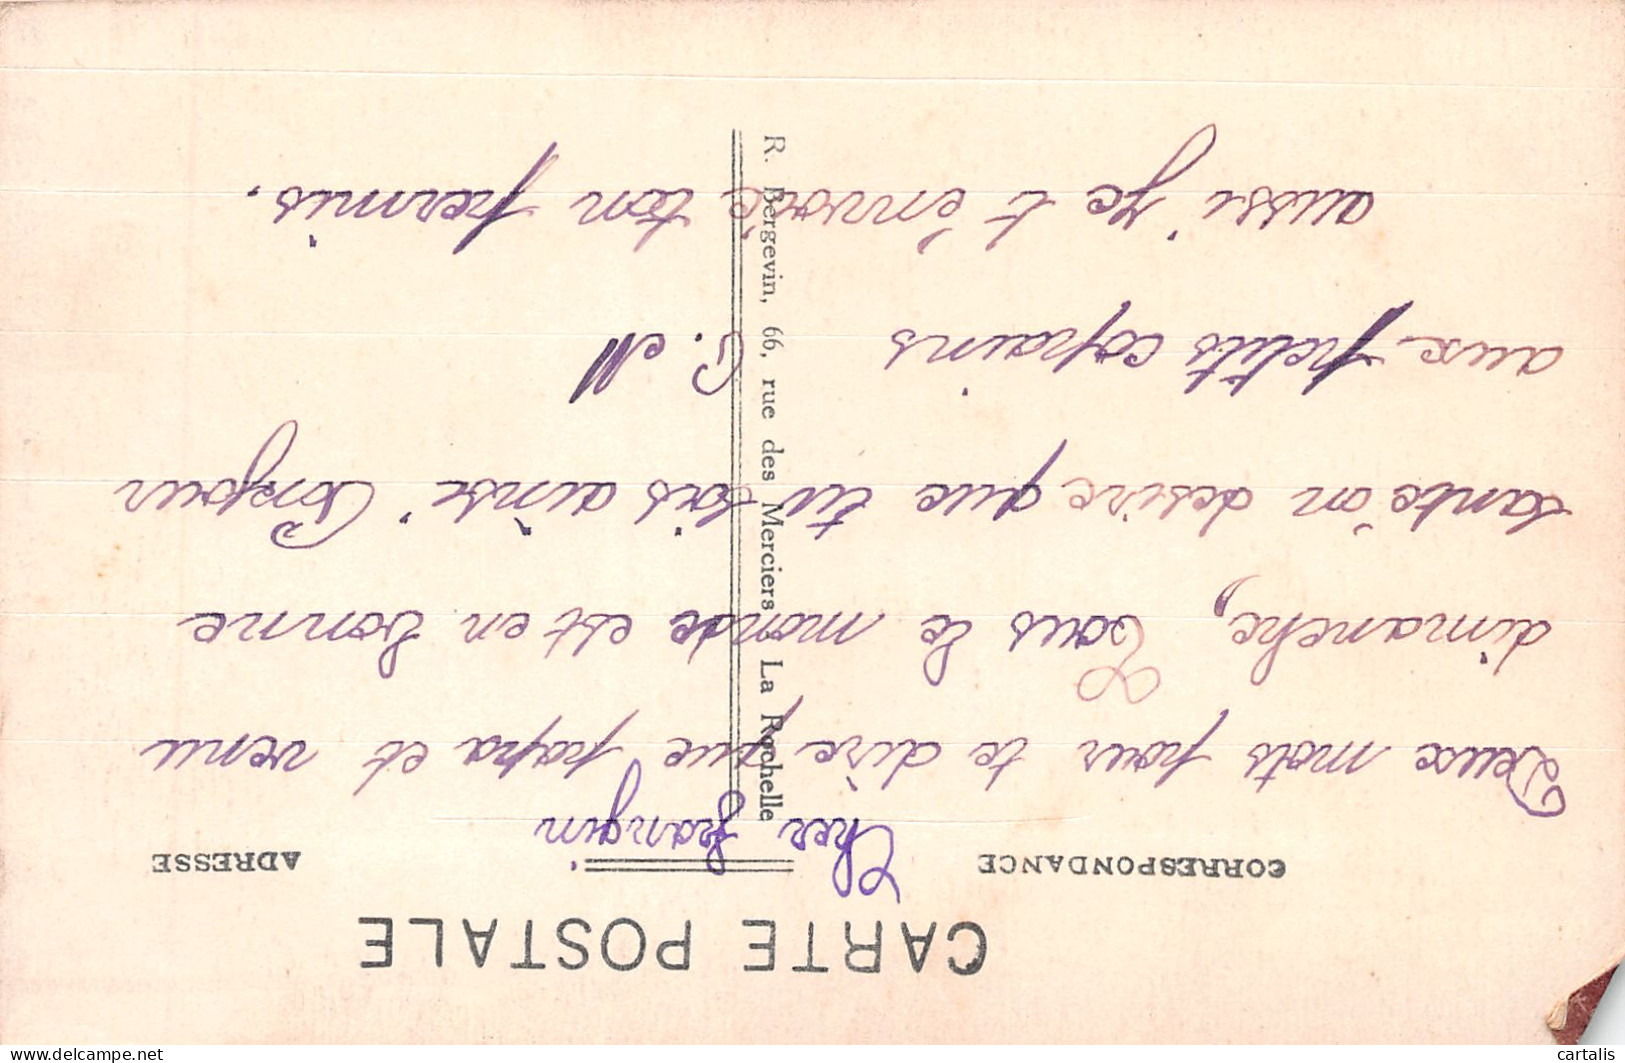 CARTE POSTALE
CORRESPONDANCE
ADRESSE
Cher frangin
Deux mots pour te dire que papa et venu
dimanche, Tous le monde est en bonne
sante on desire que tu sois ainsi Bonjour
aux petits copains C. M
aussi je t'envoie ton permis.
R. Bergevin, 66, rue des Merciers La Rochelle
delcampe.net
cartalis